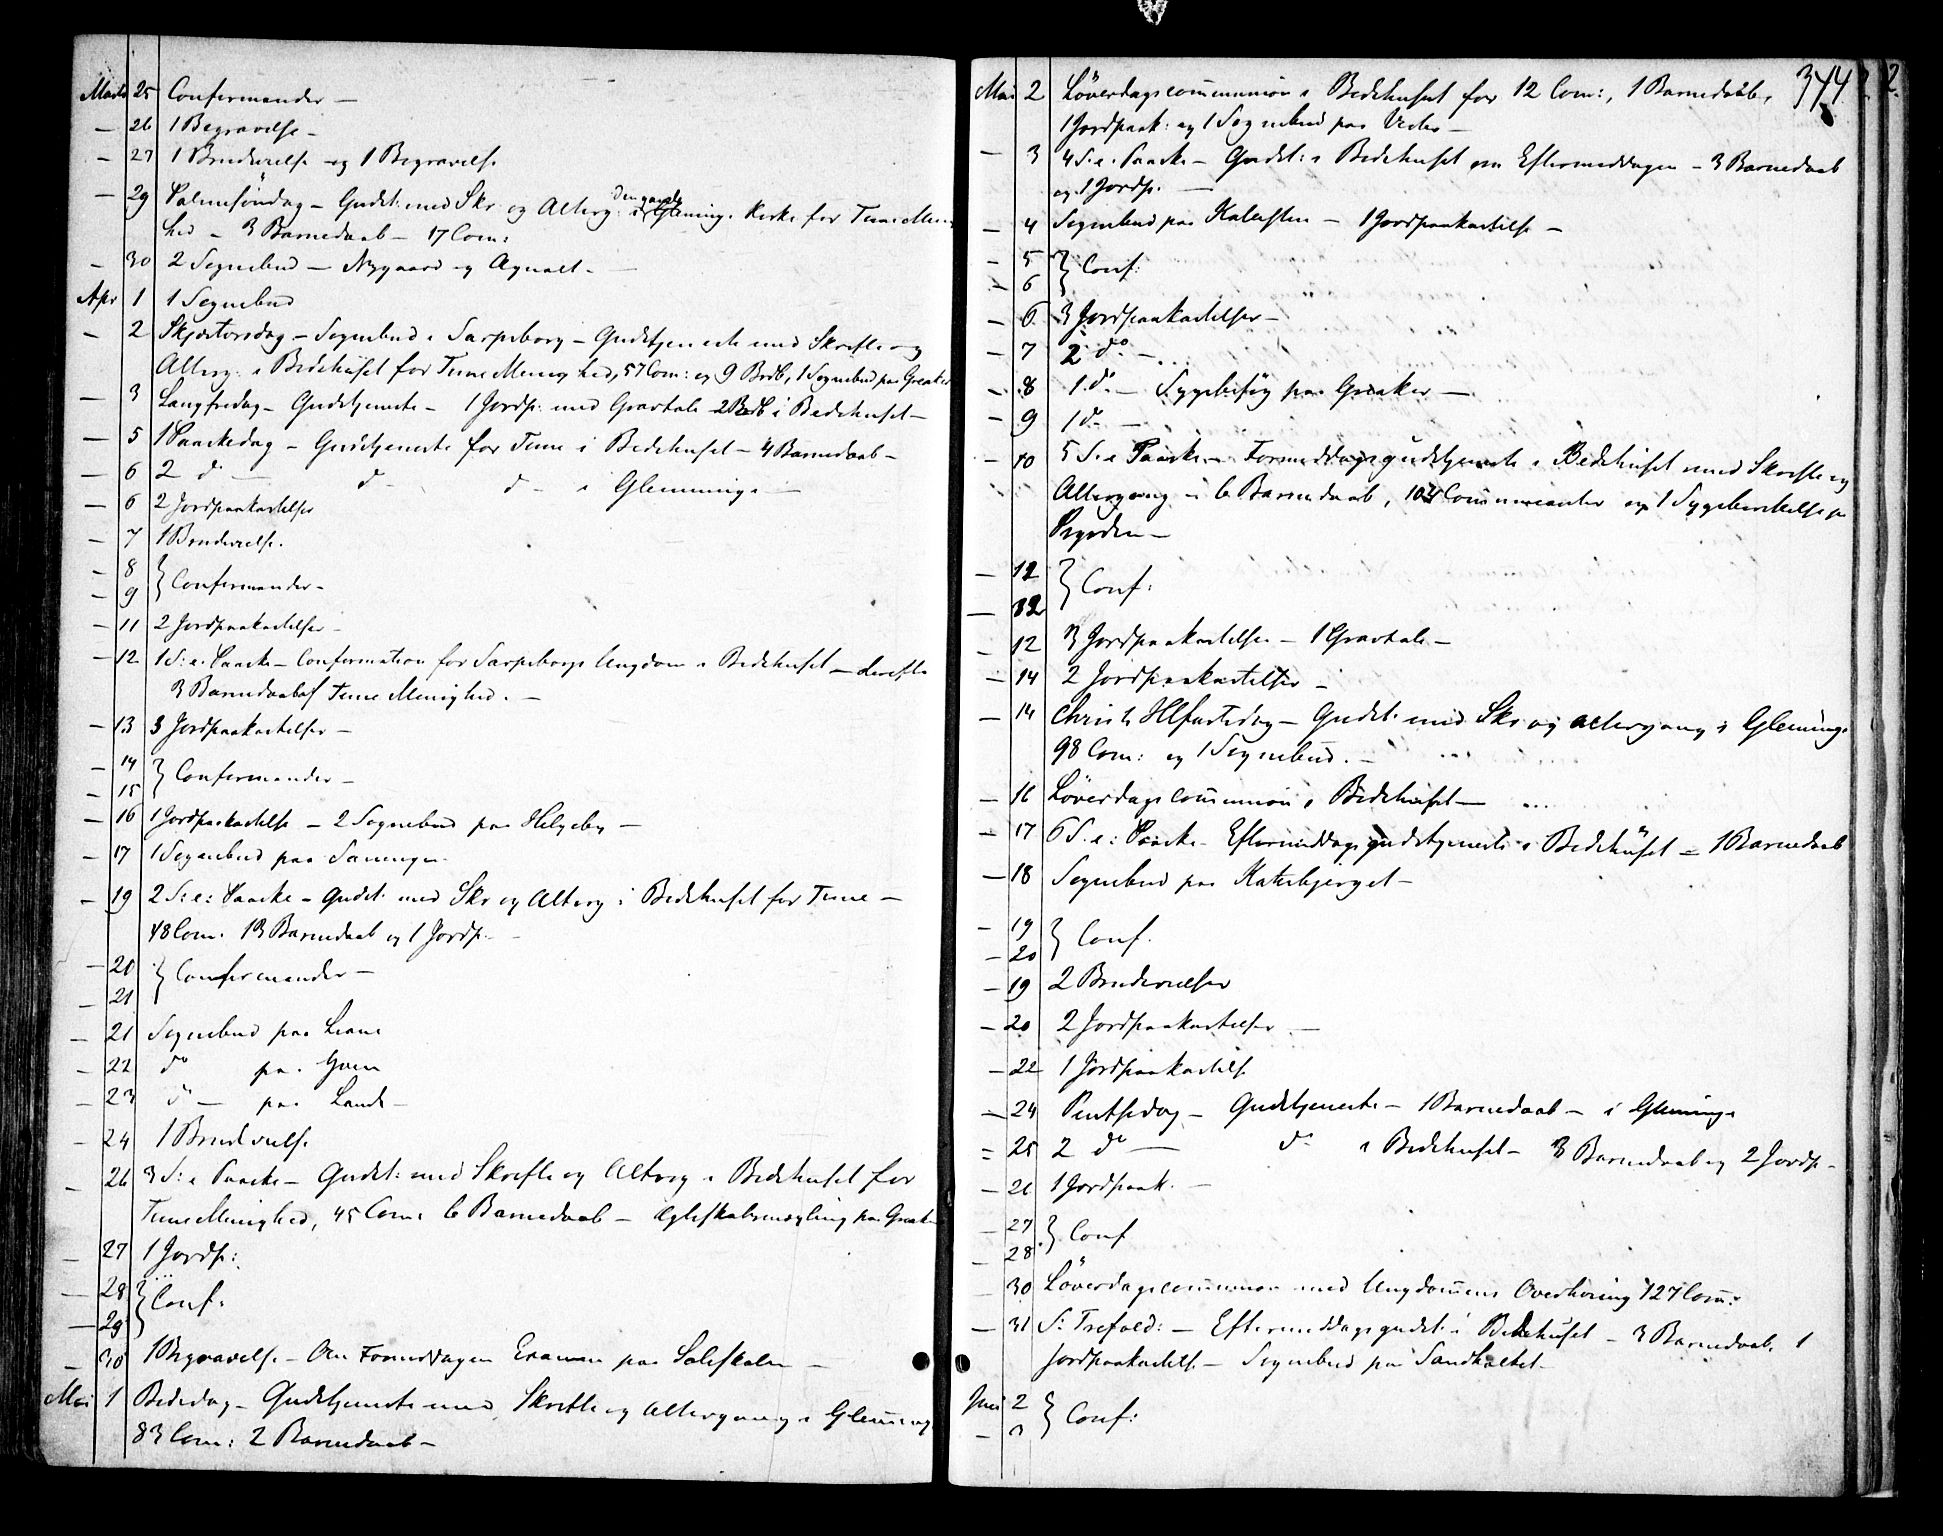 Marts 25 Confirmander —
— 26 1 Begravelse —
— 27 1 Brudevielse og 1 Begravelse
— 29 Palmesøndag — Gudst: med Skr og Alterg: i den gamle Glemminge Kirke for Tune Menig
hed — 3 Barnedaab — 17 Com:
— 30 2 Sognebud — Nygaard og Agnalt —
Apr 1 1 Sognebud
— 2 Skjærtorsdag — Sognebud i Sarpsborg — Gudstjeneste med Skrifte og
Alterg: i Bedehuset for Tune Menighed, 57 Com: og 9 Brdb, 1 Sognebud paa Greaker
— 3 Langfredag — Gudstjeneste — 1 Jordp: med Gravtale 2 Brdb i Bedehuset —
— 5 1 Paaskedag — Gudstjeneste for Tune i Bedehuset — 4 Barnedaab —
— 6 2 do — do — do — i Glemminge —
— 6 2 Jordpaakastelser
— 7 1 Brudevielse.
— 8
— 9 } Confirmander —
— 11 2 Jordpaakastelser —
— 12 1 S: e. Paaske — Confirmation for Sarpsborgs Ungdom i Bedehuset — derefter
3 Barnedaab af Tune Menighed. —
— 13 3 Jordpaakastelser —
— 14
— 15 } Confirmander —
— 16 1 Jordpaakastelse — 2 Sognebud paa Helgeby —
— 17 1 Sognebud paa
— 19 2 S: e: Paaske — Gudst: med Skr og Alterg i Bedehuset for Tune —
48 Com. 13 Barnedaab og 1 Jordp. —
— 20
— 21 } Confirmander —
— 21 Sognebud paa
— 22 do paa
— 23 do — paa Lande —
— 24 1 Brudevielse
— 26 3 S: e Paaske — Gudst: med Skrifte og Alterg i Bedehuset for
Tune Menighed, 45 Com: 6 Barnedaab — paa Greaker
— 27 1 Jordp:
— 28
— 29 } Conf:
— 30 1 Begravelse — Om Formiddagen Examen paa
Mai 1 Bededag — Gudstjeneste med Skrifte og Altergang i Glemminge
83 Com: 2 Barnedaab —
344
Mai 2 Löverdagscommunion i Bedehuset for 12 Com:, 1 Barnedaab,
1 Jordpaak: og 1 Sognebud paa
— 3 4 S. e. Paaske — Gudst: i Bedehuset om Eftermiddagen — 3 Barnedaab
og 1 Jordp. —
— 4 Sognebud paa — 1 Jordpaakastelse —
— 5
— 6 } Conf:
— 6 3 Jordpaakastelser —
— 7 2 do —
— 8 1 do — Sygebesøg paa Greaker —
— 9 1 do —
— 10 5 S. e Paaske — Formiddagsgudstjeneste i Bedehuset med Skrifte og
Altergang — 6 Barnedaab, 104 Communicanter og 1 Sygeberettelse paa

— 12
— 12 } Conf:
— 12 3 Jordpaakastelser — 1 Gravtale —
— 14 2 Jordpaakastelser —
— 14 Christi Hlfartsdag — Gudst: med Skr og Altergang i Glemminge
98 Com: og 1 Sognebud. —
— 16 Löverdagscommunion i Bedehuset —
— 17 6 S. e: Paaske — Eftermiddagsgudstjeneste i Bedehuset — 1 Barnedaab
— 18 Sognebud paa Katebjerget —
— 19
— 20 } Conf.
— 19 2 Brudevielser
— 20 2 Jordpaakastelser —
— 22 1 Jordpaakastelse
— 24 Pintsedag — Gudstjeneste — 1 Barnedaab — i Glemminge
— 25 2 do — do i Bedehuset — 3 Barnedaab og 2 Jordp —
— 26 1 Jordpaak. —
— 27
— 28 } Conf
30 Löverdagscommunion med Ungdommens Overhøring 127 Com:
— 31 S: Trefold: — Eftermiddagsgudst: i Bedehuset — 3 Barnedaab. 1
Jordpaakastelse — Sognebud paa
Juni 2
— 3 } Conf: